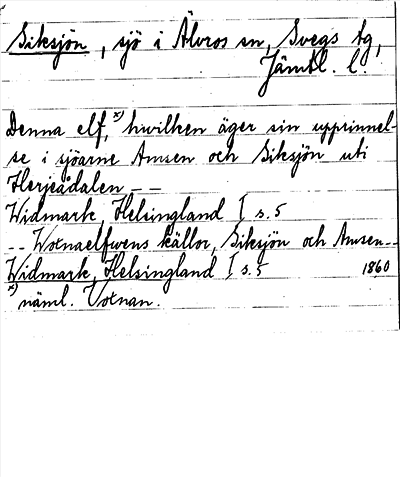 Siksjön, sjö i Älvros sn, Svegs tg,
Jämtl. l.
Denna elf, x) hwilken äger sin upprinnel-
se i sjöarne Amsen och Siksjön uti
Herjeådalen - -
Widmark, Helsingland I s. 5
- - Wotnaelfwens källor, Siksjön och Amsen - -
Widmark, Helsingland I s. 5 1860
x) näml. Votnan.